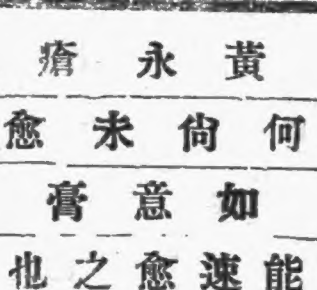 黃永瘡
何尙未愈
如意膏
能速愈之也